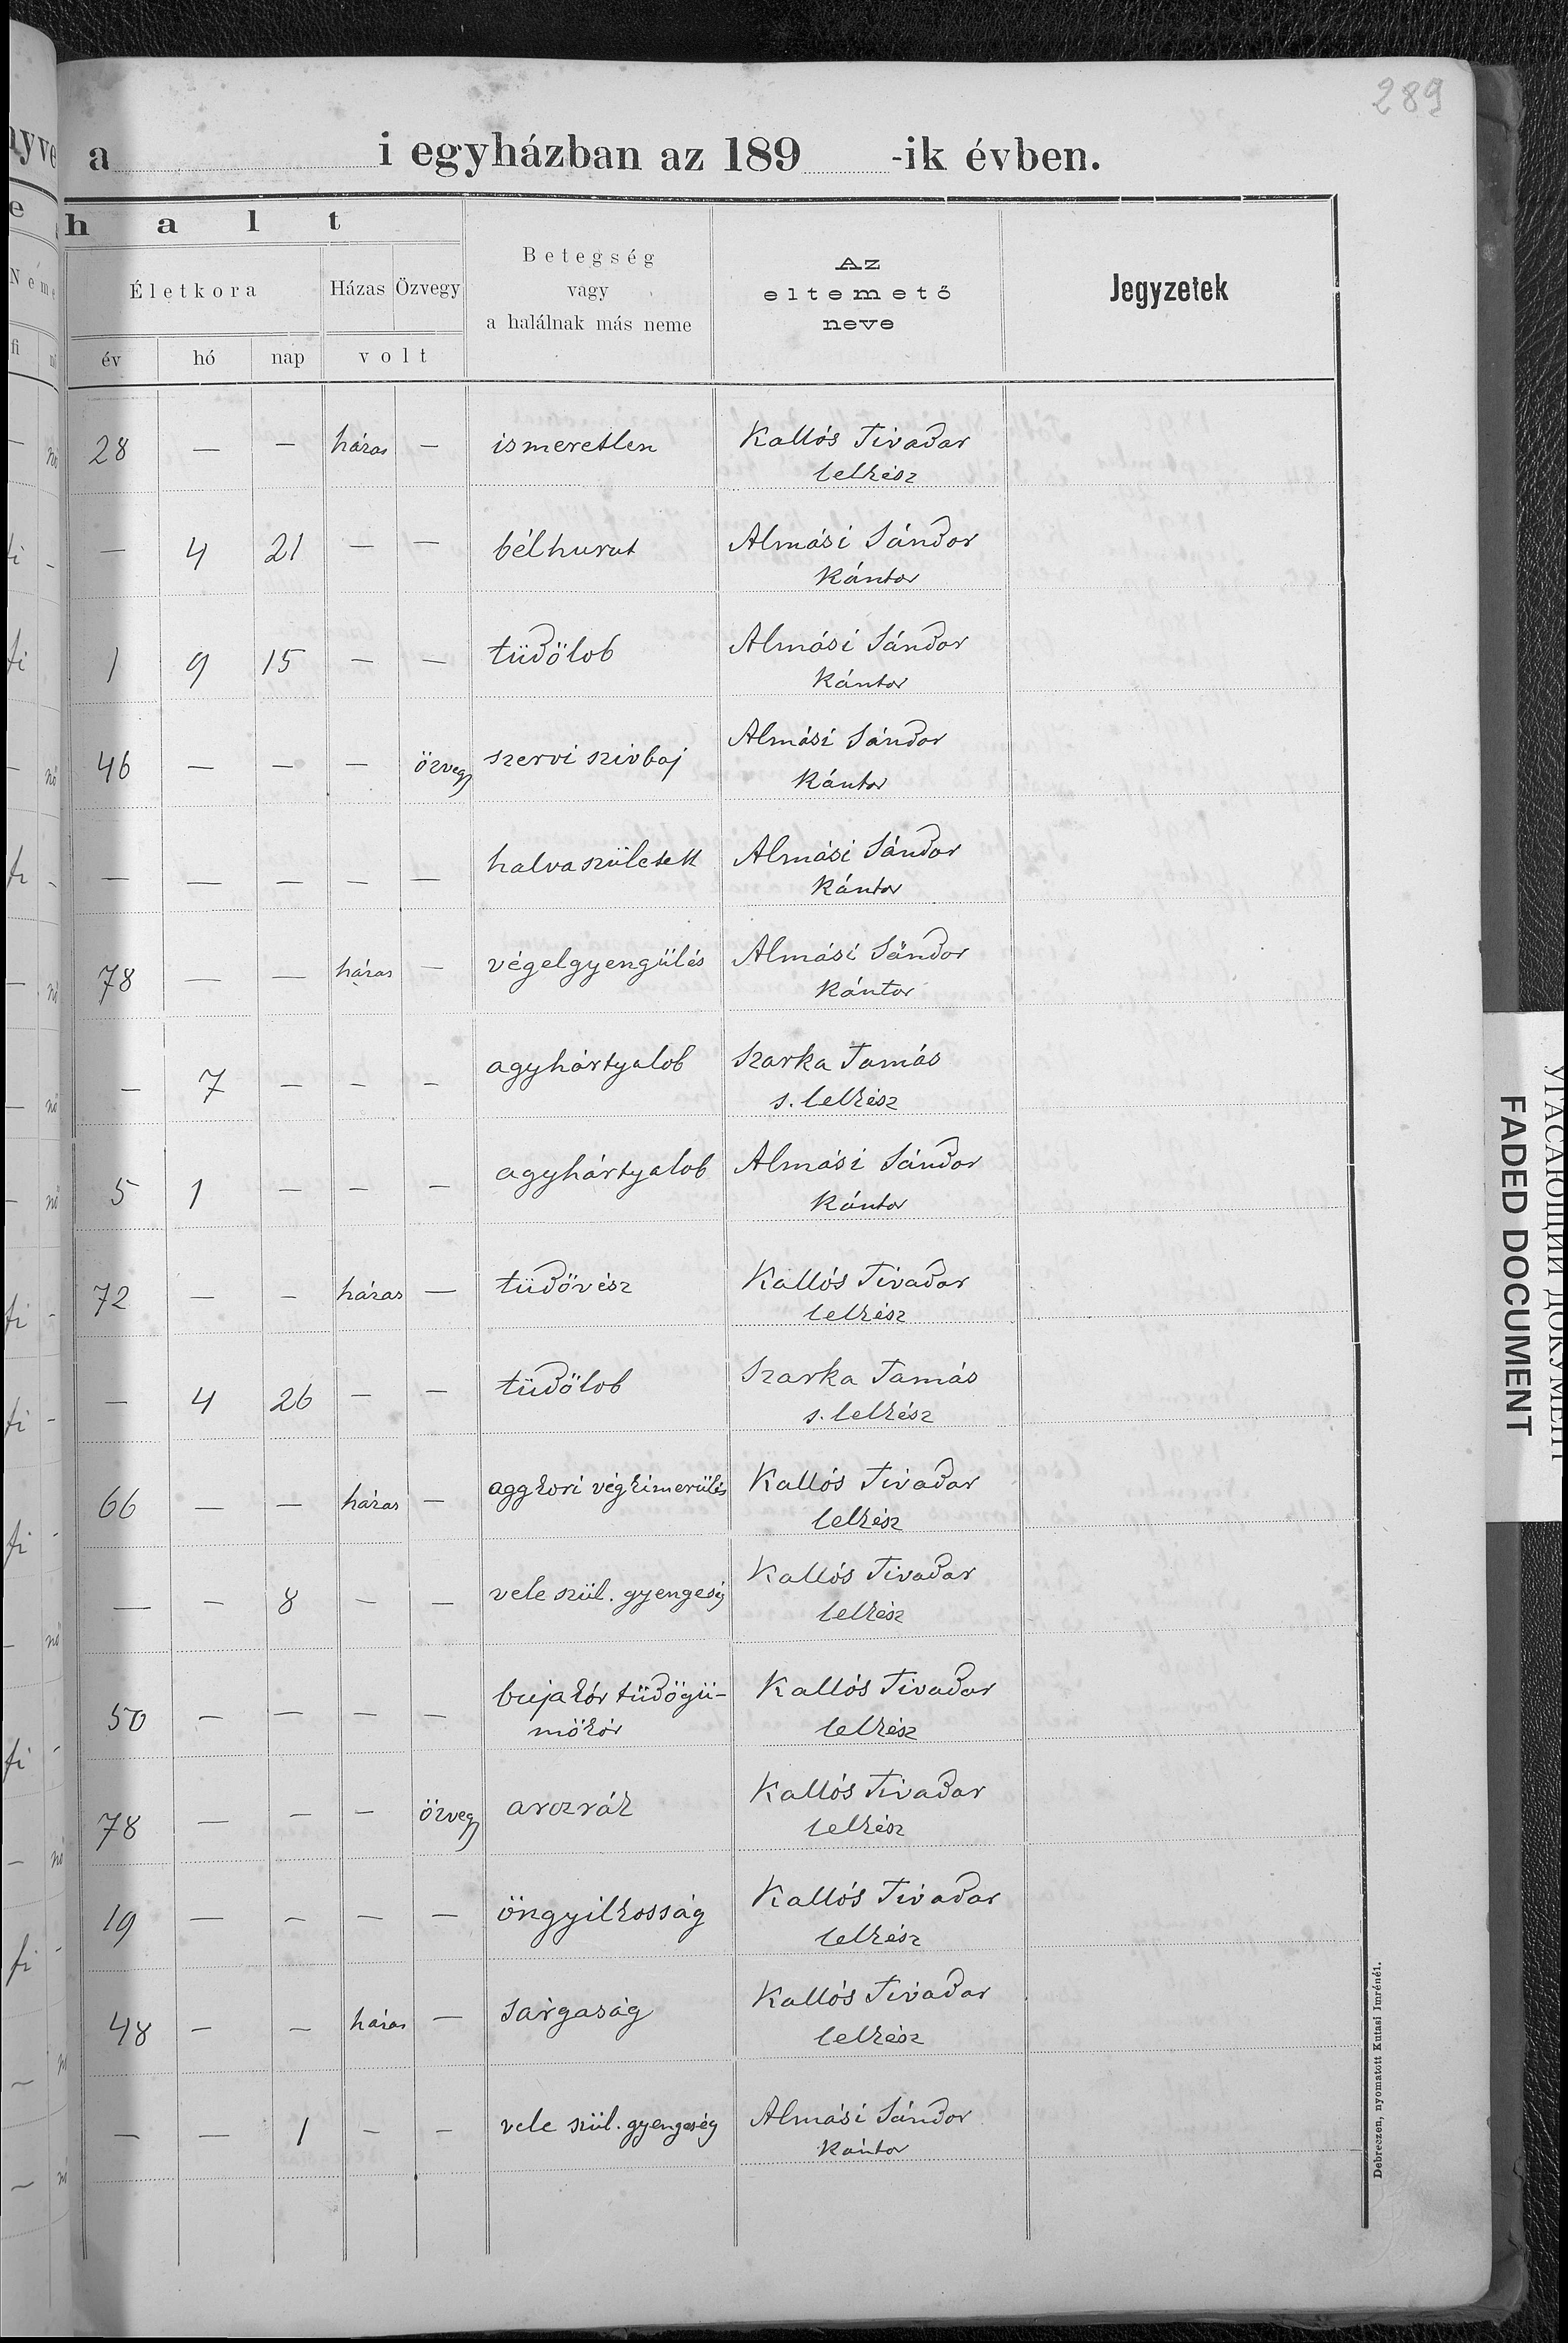 289
a i egyházban az 189 -ik évben.
h a l t
Életkora
Házas Özvegy
Betegség
vagy
a halálnak más neme
Az
eltemető
neve
Jegyzetek
év hó nap volt
28 — — házas — ismeretlen Kallós Tivadar
lelkész
— 4 21 — — bélhurut Almási Sándor
Kántor
1 9 15 — — tüdőlob Almási Sándor
Kántor
46 — — — özvegy szervi szivbaj Almási Sándor
Kántor
— — — — — halva született Almási Sándor
Kántor
78 — — házas — végelgyengülés Almási Sándor
Kántor
— 7 — — — agyhártyalob Szarka Tamás
s. lelkész
5 1 — — — agyhártyalob Almási Sándor
Kántor
72 — — házas — tüdővész Kallós Tivadar
lelkész
— 4 26 — — tüdőlob Szarka Tamás
s. lelkész
66 — — házas — aggkori végkimerülés Kallós Tivadar
lelkész
— — 8 — — vele szül. gyengeség Kallós Tivadar
lelkész
50 — — — — bujakór tüdőgü- Kallós Tivadar
mőkór lelkész
78 — — — özvegy arczrák Kallós Tivadar
lelkész
19 — — — — öngyilkosság Kallós Tivadar
lelkész
48 — — házas — sárgaság Kallós Tivadar
lelkész
— — 1 — — vele szül. gyengeség Almási Sándor
Kántor
Debreczen, nyomatott Kutasi Imrénél.
FADED DOCUMENT